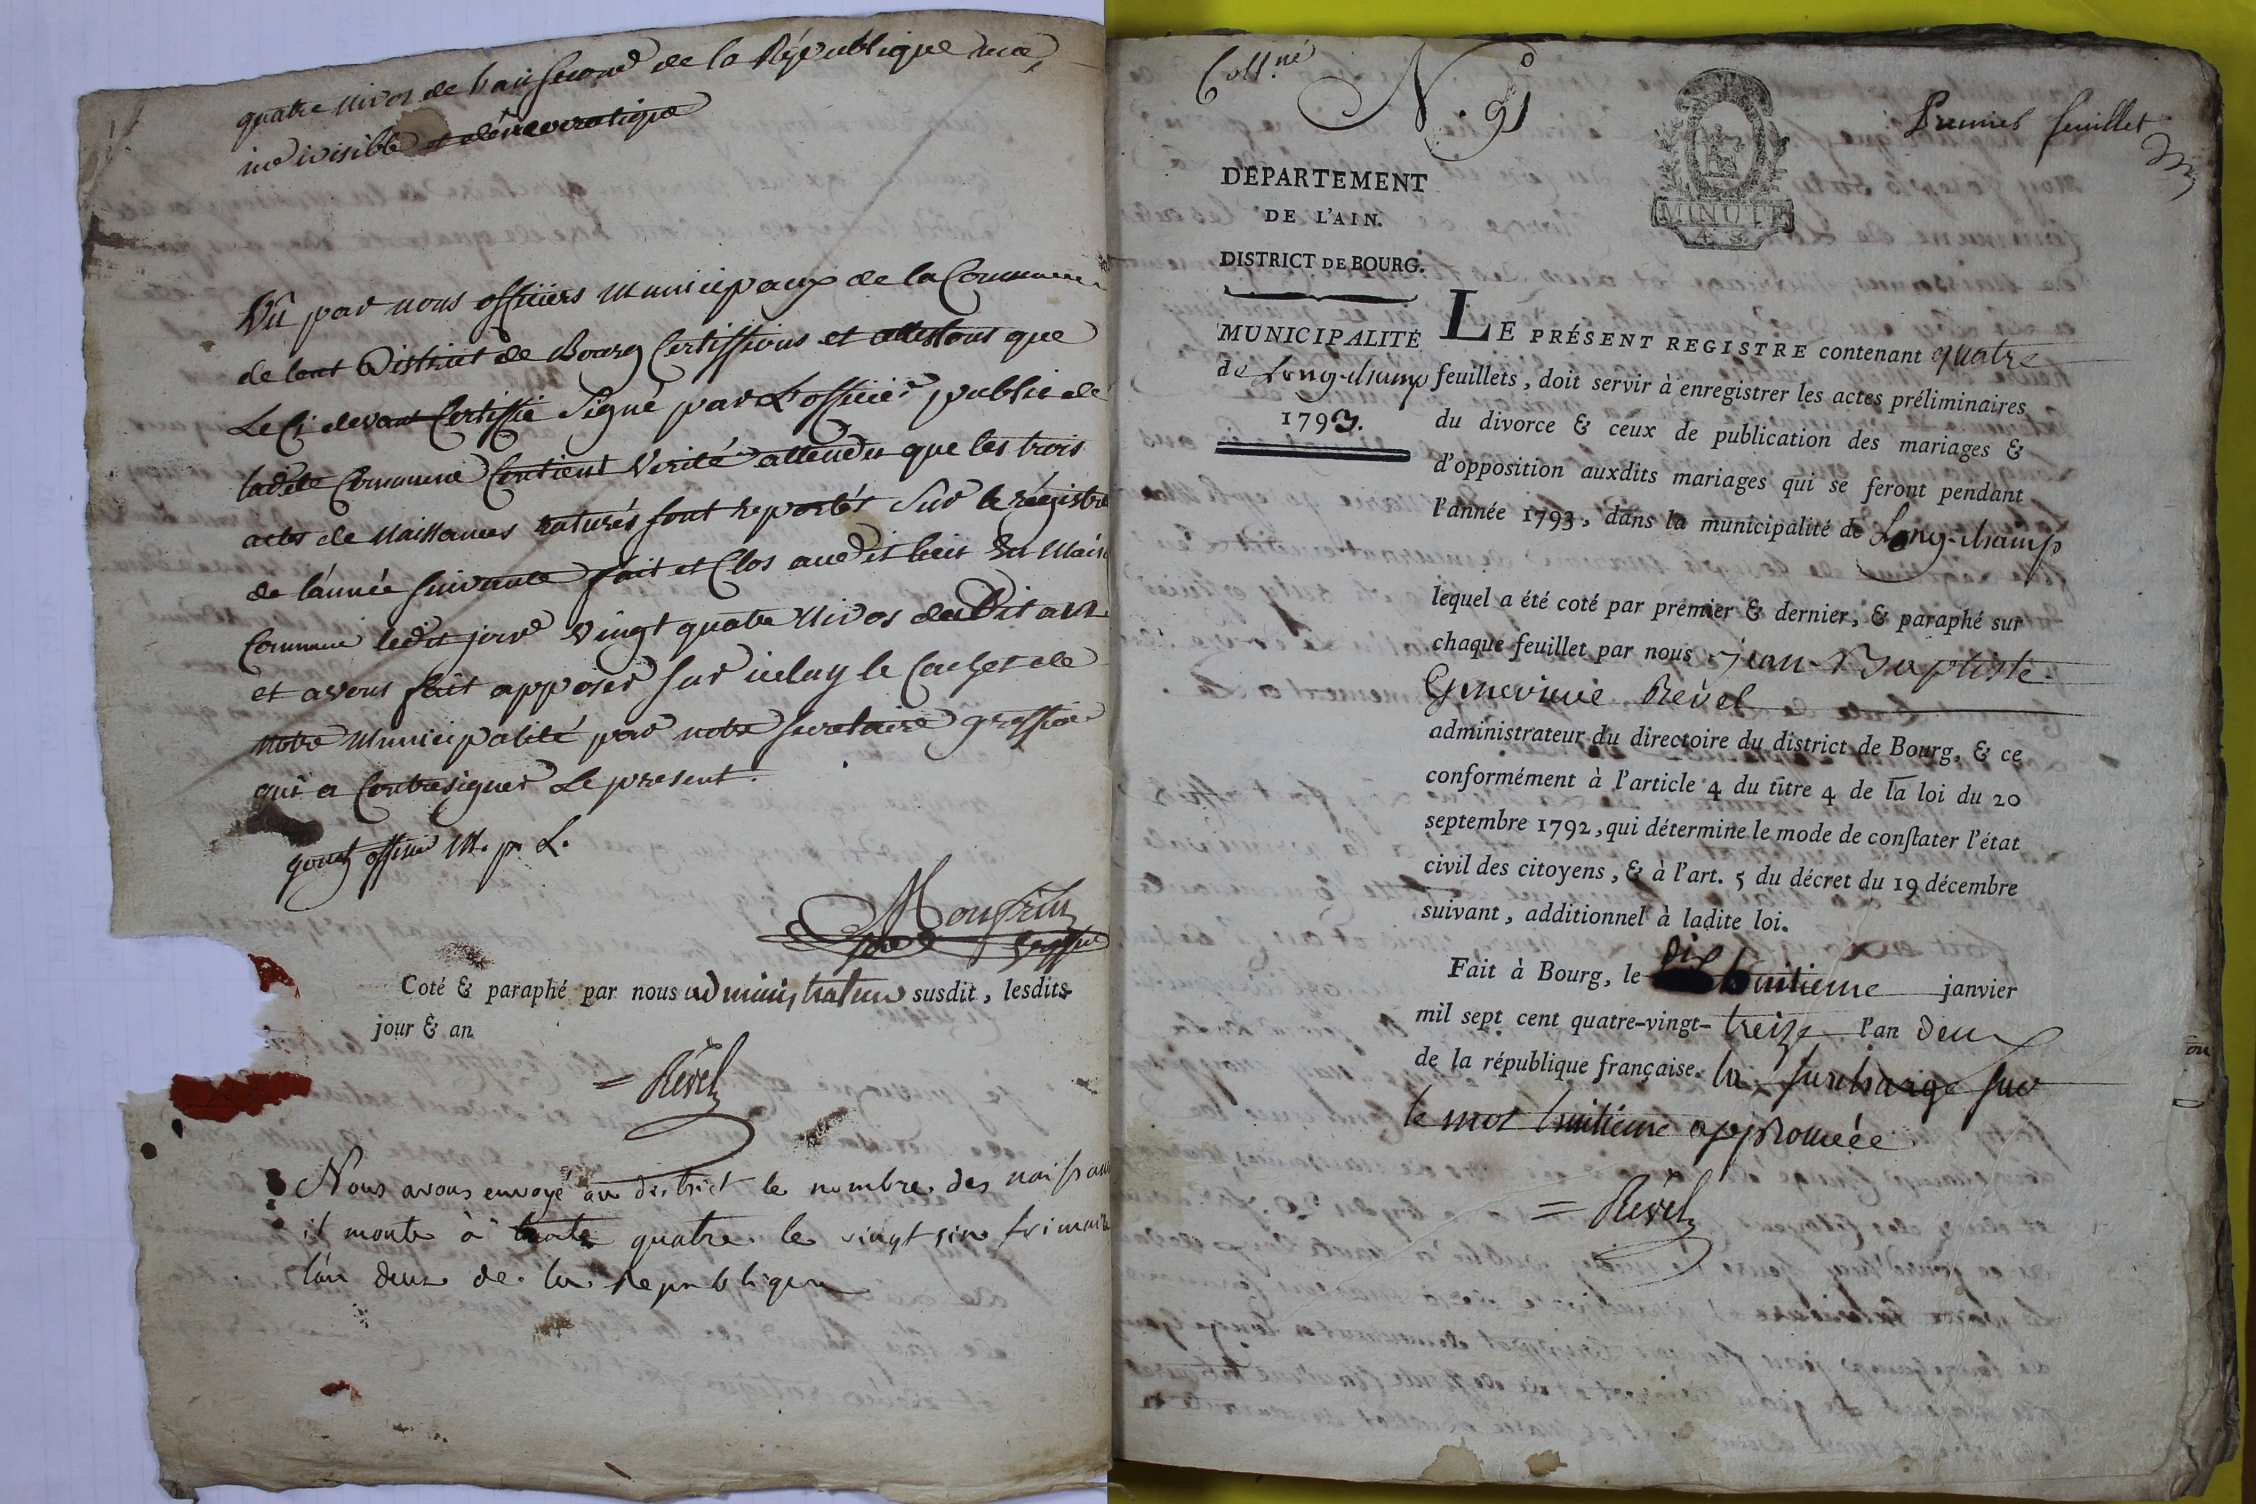 quatre nivos de l'an second de la République une,
indivisible et démocratique
Vû par nous officiers municipaux de la Commune
de District de Bourg Certiffions et attestons que
Le Ci devant Certiffié Signé par L'officier public de
ladite Commune Contient Verité attendu que les trois
actes de Naissances raturés sont reportés Sur le régistre
de l'année suivante fait et Clos audit lieu
Commune ledit jour vingt quatre Nivos dudit an
et avons fait apposer sur iceluy le Cachet de
notre Municipalité par notre secretaire greffier
qui a Contresigner Le present.
officier M. p. L.
Coté & paraphé par nous administrateur susdit, lesdits
jour & an
= Revel
Nous avons envoyé au district le nombre des naissan
il monte à trente quatre le vingt six frimaire
l'an deux de la Republique
Coll.né
N.º 91
Premier feuillet
MINUTE
4 S
DÉPARTEMENT
DE L'AIN.
DISTRICT DE BOURG.
MUNICIPALITÉ
de Long-champ
1793.
LE PRÉSENT REGISTRE contenant quatre
feuillets, doit servir à enregistrer les actes préliminaires
du divorce & ceux de publication des mariages &
d'opposition auxdits mariages qui se feront pendant
l'année 1793, dans la municipalité de Long-champ
lequel a été coté par premier & dernier, & paraphé sur
chaque feuillet par nous Jean-Baptiste
Genevieve Revel
administrateur du directoire du district de Bourg, & ce
conformément à l'article 4 du titre 4 de la loi du 20
septembre 1792, qui détermine le mode de conſtater l'état
civil des citoyens, & à l'art. 5 du décret du 19 décembre
suivant, additionnel à ladite loi.
Fait à Bourg, le dix huitieme janvier
mil sept cent quatre-vingt-treize l'an deux
de la république française. la surcharge sur
le mot huitieme approuvée
= Revel